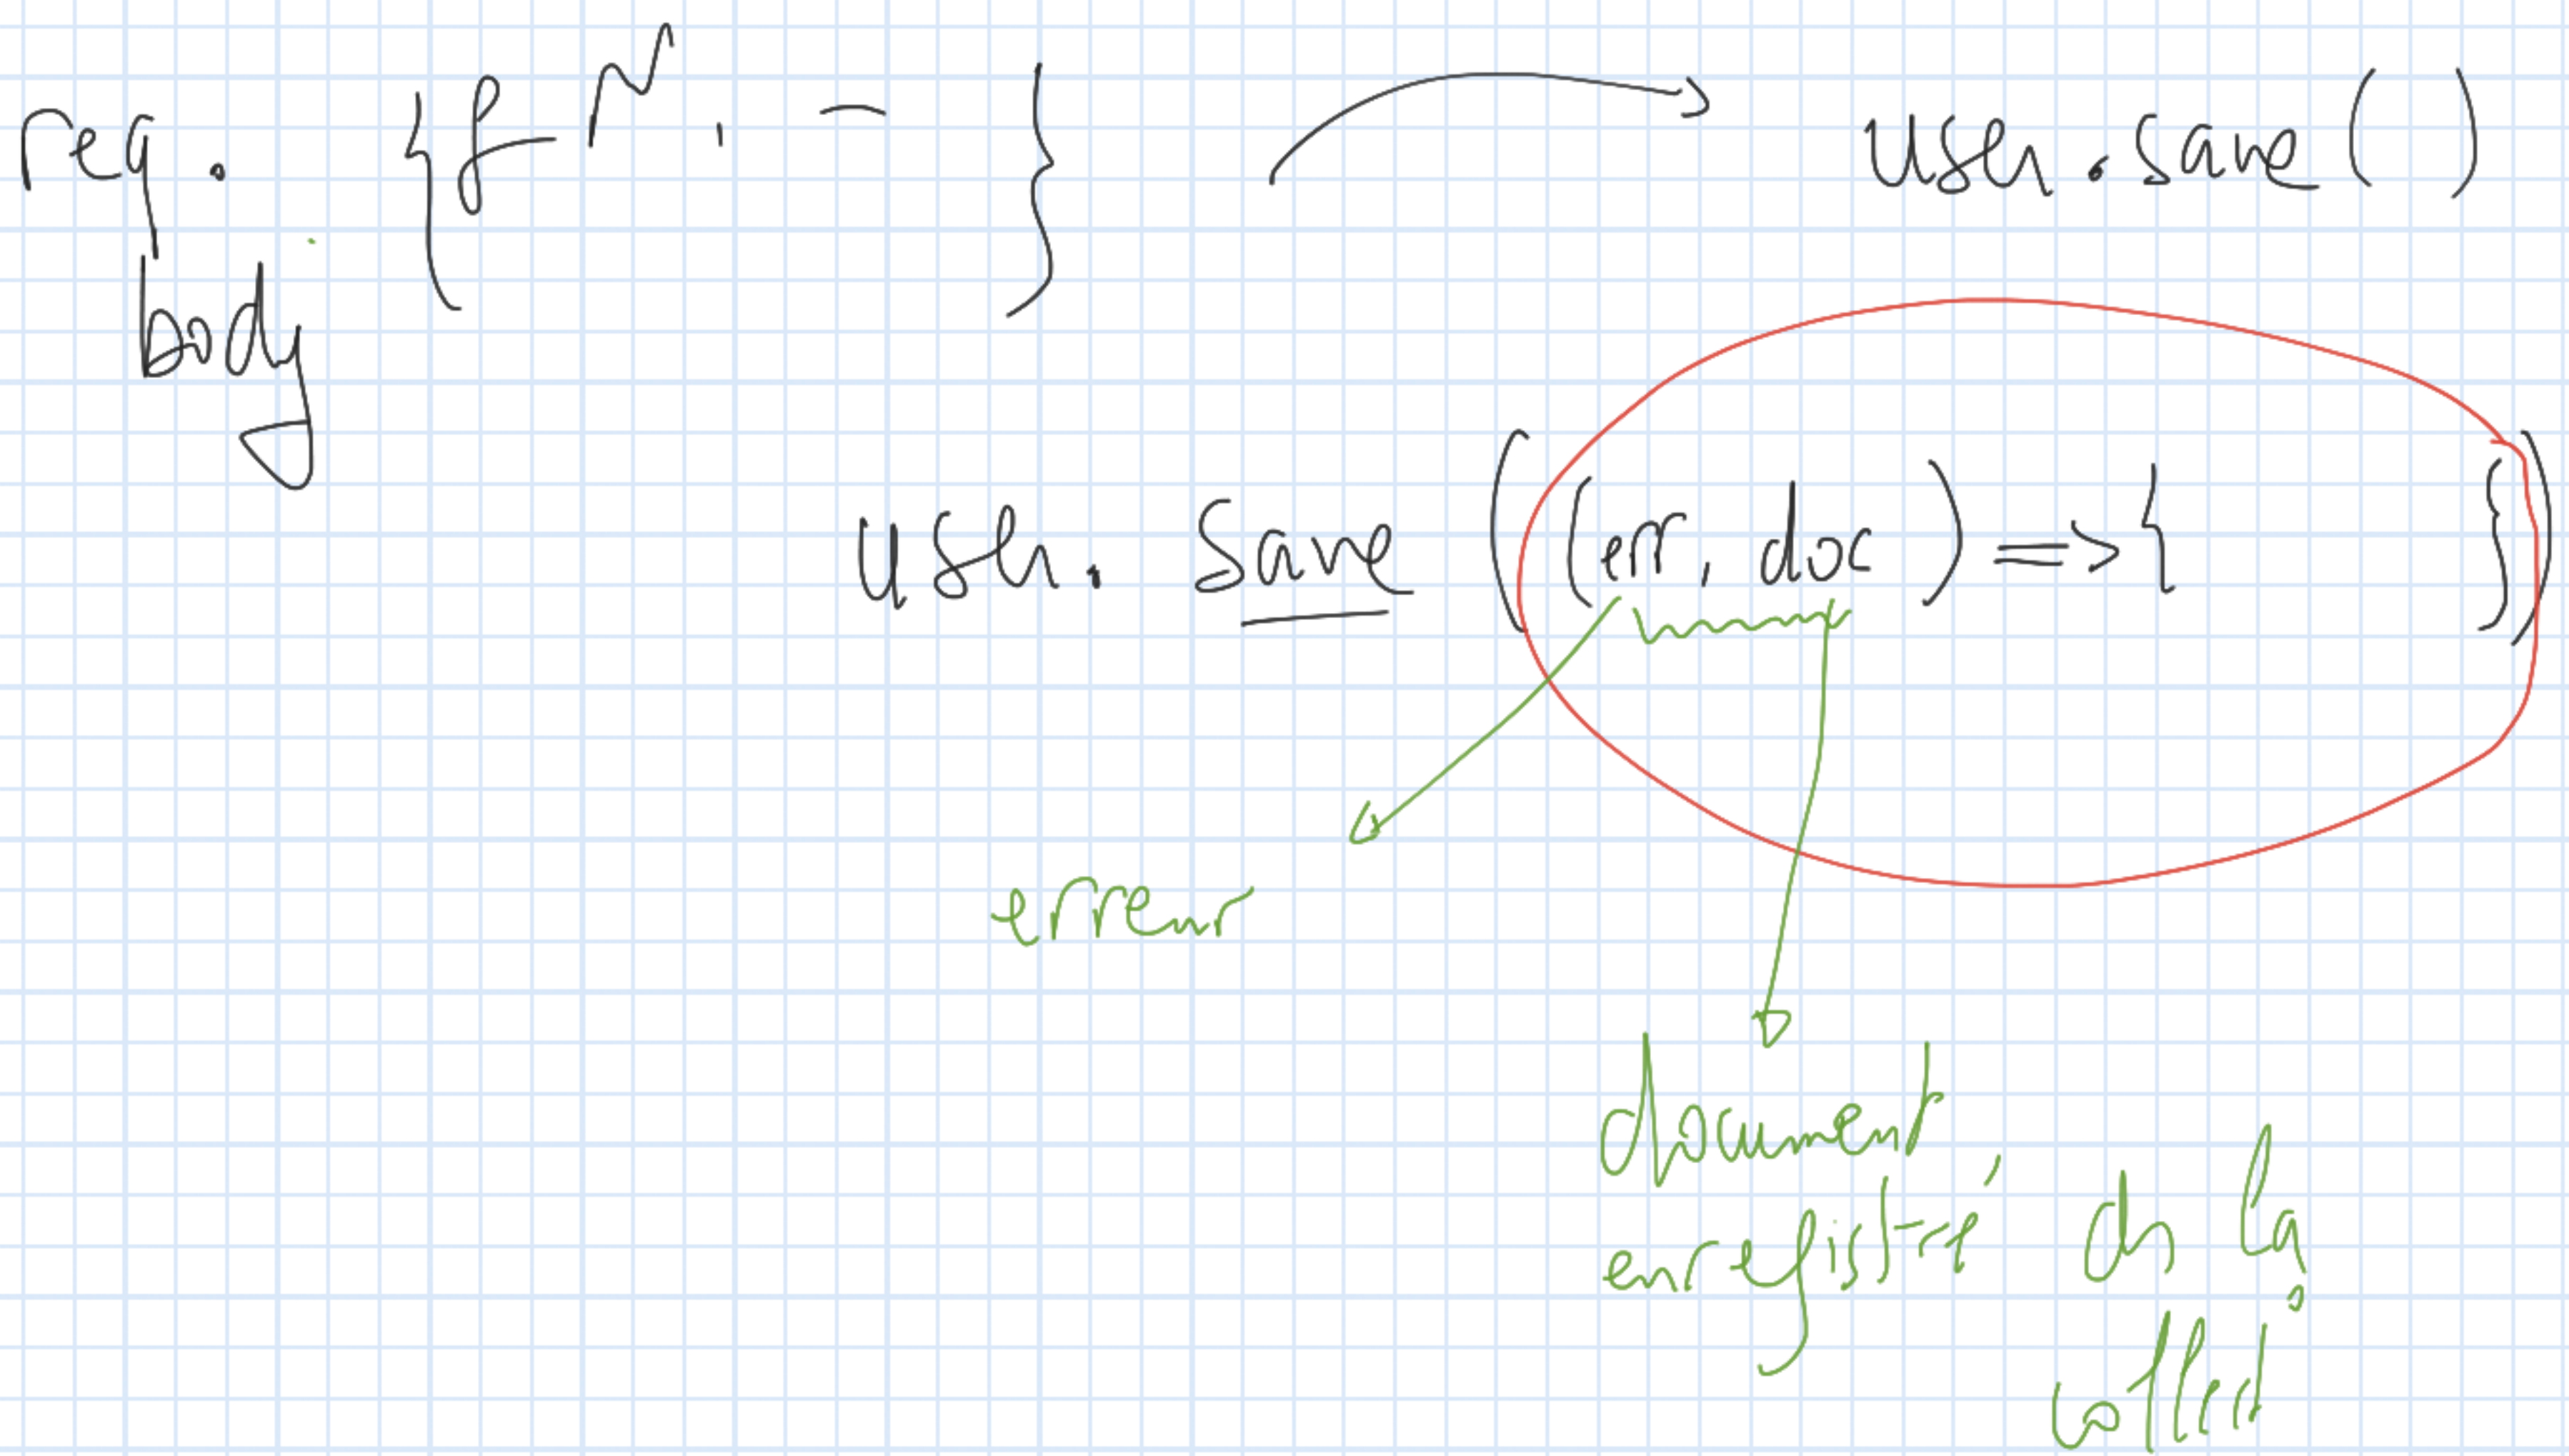 req. {f N, - } user.save()
body
user. save ((err, doc) => { })
erreur
document
enregistré ds la
collect°